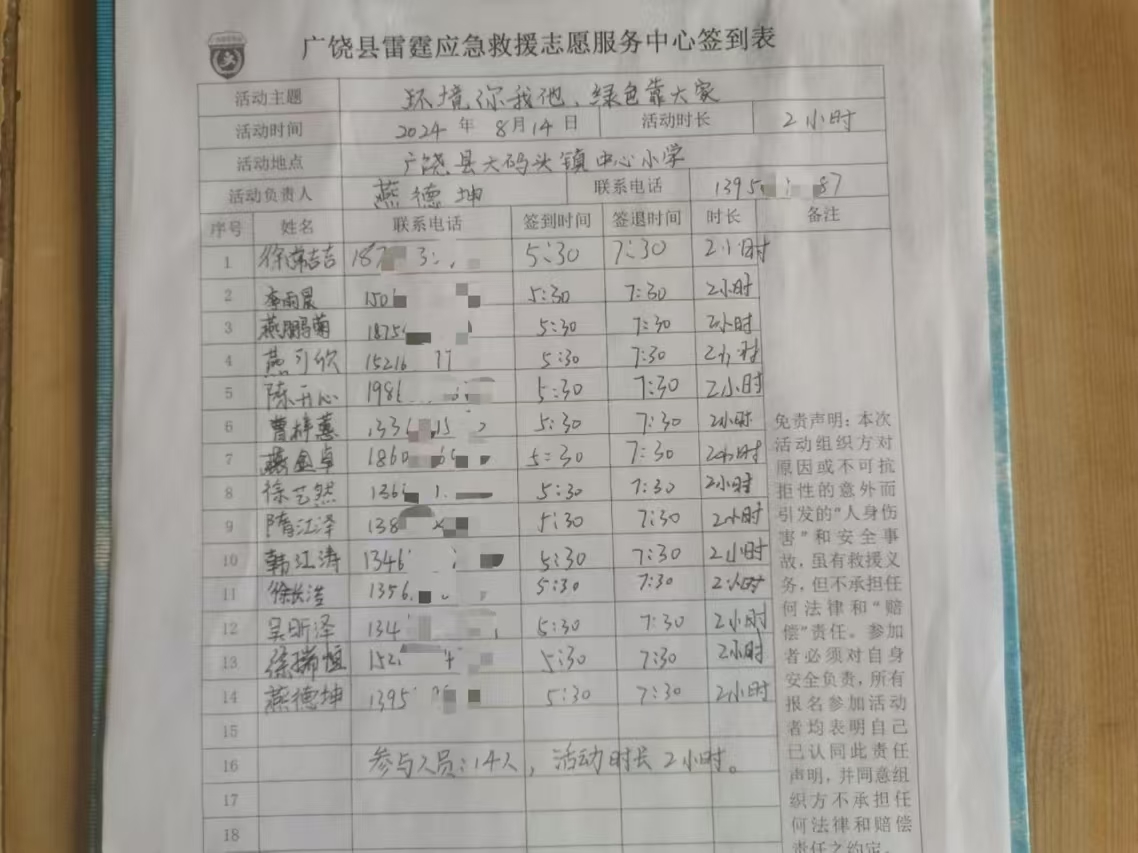 广饶县雷霆应急救援志愿服务中心签到表
活动主题 环境你我他、绿色靠大家
活动时间 2024年8月14日 活动时长 2小时
活动地点 广饶县大码头镇中心小学
活动负责人 燕德坤 联系电话 1395 87
序号 姓名 联系电话 签到时间 签退时间 时长 备注
1 187 3 5:30 7:30 2小时
2 李雨晨 150 5:30 7:30 2小时
3 燕鹏菊 1875 5:30 7:30 2小时
4 燕可欣 15216 77 5:30 7:30 2小时
5 陈开心 1986 5:30 7:30 2小时
6 曹梓蕙 133 15 5:30 7:30 2小时
7 燕金卓 1860 5:30 7:30 2小时
8 徐艺然 136 1 5:30 7:30 2小时
9 隋江泽 138 5:30 7:30 2小时
10 韩江涛 1346 5:30 7:30 2小时
11 1356 5:30 7:30 2小时
12 吴昕泽 134 5:30 7:30 2小时
13 徐瑞恒 152 5:30 7:30 2小时
14 燕德坤 1395 5:30 7:30 2小时
15
16 参与人员:14人,活动时长2小时。
17
18
免责声明:本次
活动组织方对
原因或不可抗
拒性的意外而
引发的“人身伤
害”和安全事
故,虽有救援义
务,但不承担任
何法律和“赔
偿”责任。参加
者必须对自身
安全负责,所有
报名参加活动
者均表明自己
已认同此责任
声明,并同意组
织方不承担任
何法律和赔偿
责任之约定。